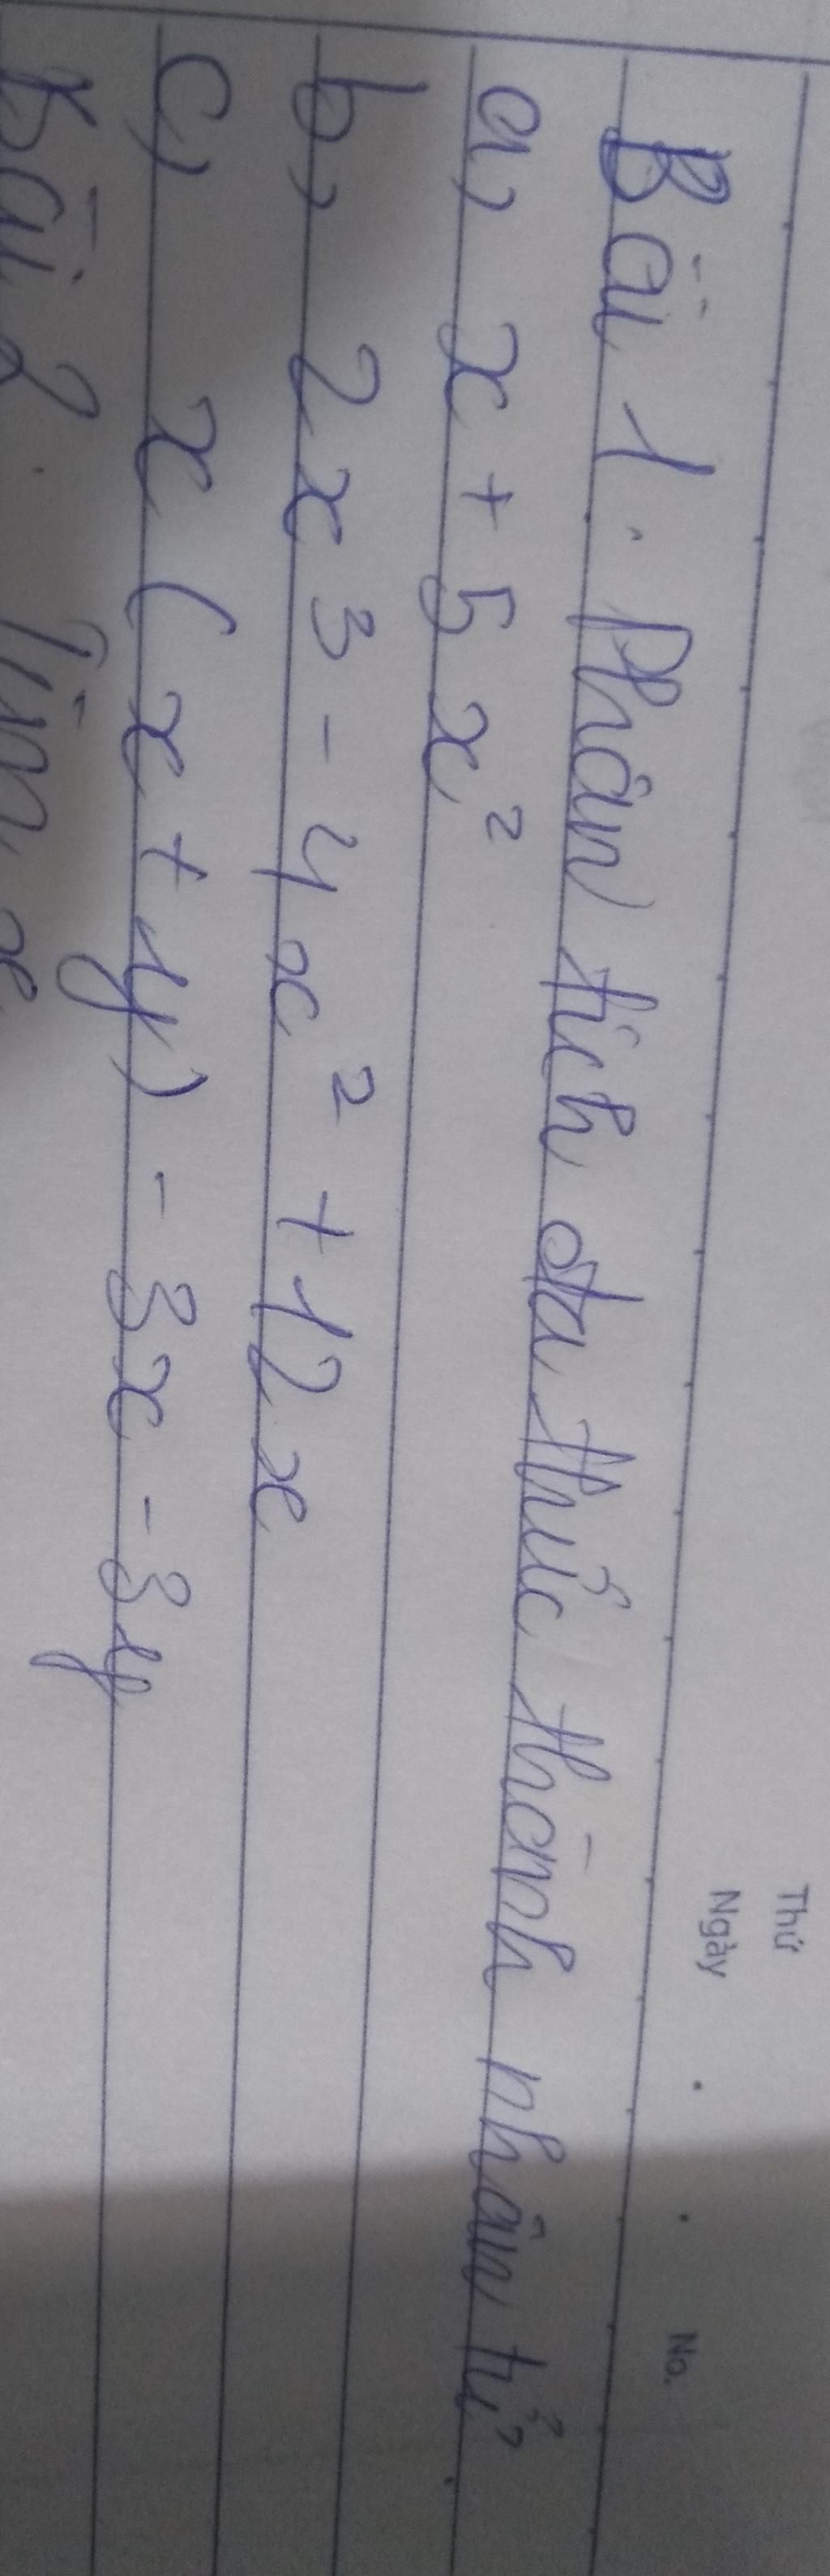 Thứ
Ngày
No.
Bài 1. Phân tích đa thức thành nhân tử
a) x + 5x²
b) 2x³ - 4x² + 12x
c) x(x + y) - 3x - 3y
Bài 2. Tìm x